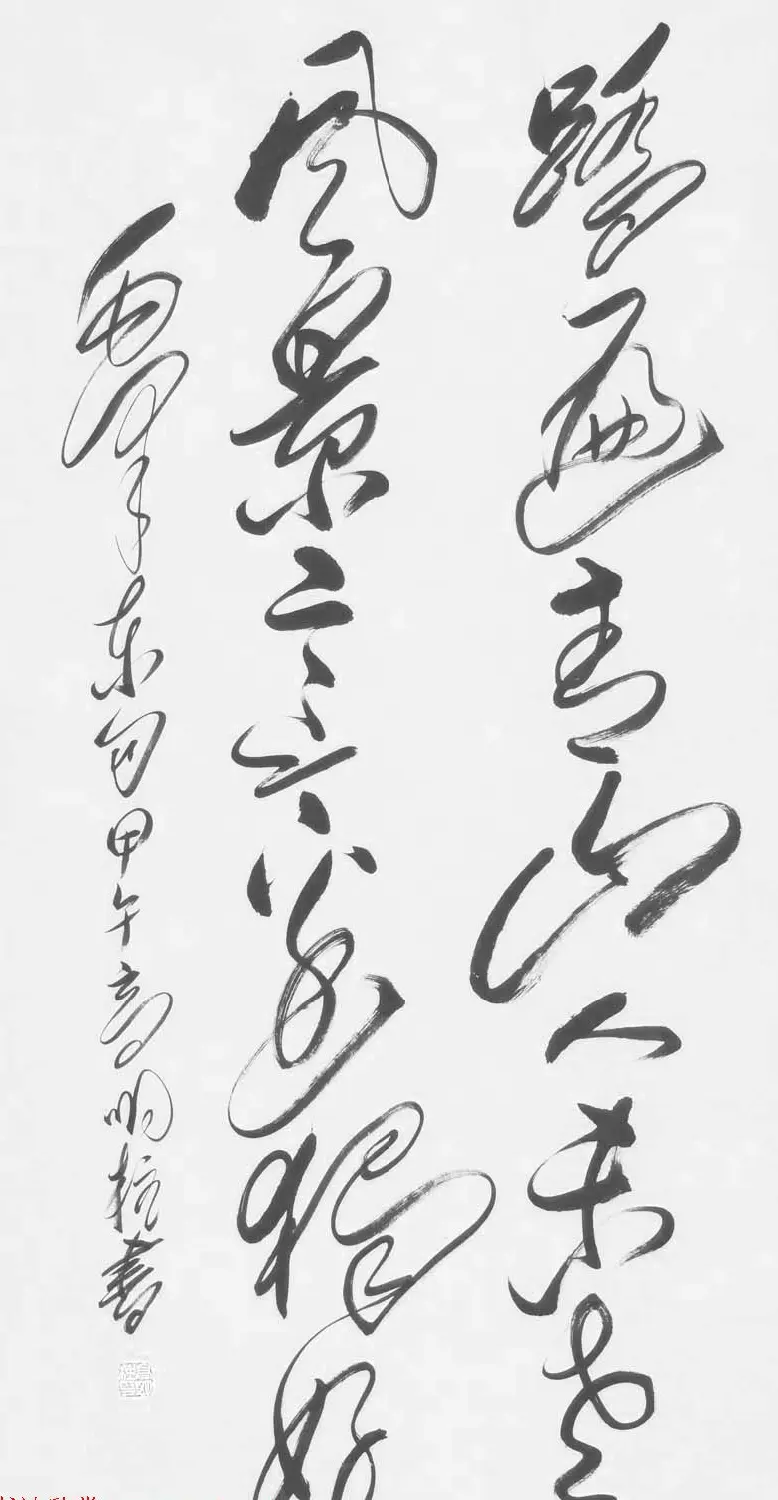 踏遍青山人未老
风景这边独好
毛泽东句甲午高明書